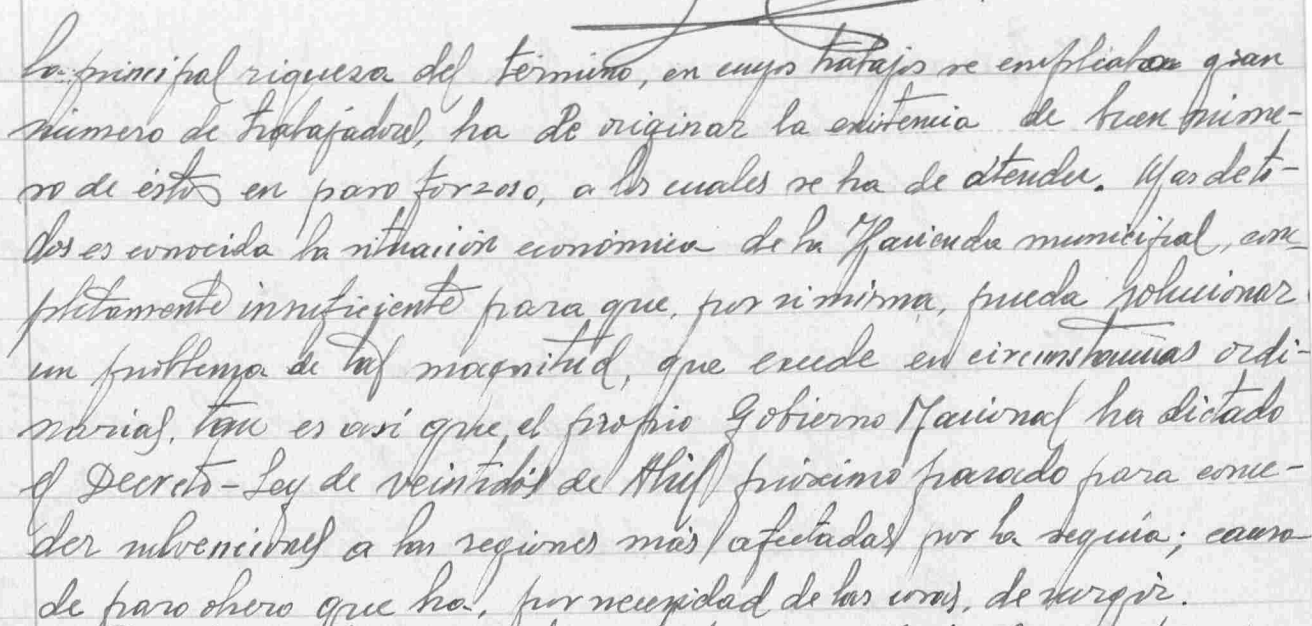 la principal riqueza del término, en cuyos trabajos se empleaban gran
número de trabajadores, ha de originar la existencia de buen núme-
ro de éstos en paro forzoso, a los cuales se ha de atender. Mas de to-
dos es conocida la situación económica de la Hacienda municipal, com-
pletamente insuficiente para que, por si misma, pueda solucionar
un problema de tal magnitud, que excede en circunstancias ordi-
narias. Tan es así que, el propio Gobierno Nacional ha dictado
el Decreto-Ley de veintidós de Abril próximo pasado para conce-
der subvenciones a las regiones más afectadas por la sequía; causa
de paro obrero que ha, por necesidad de las cosas, de surgir.